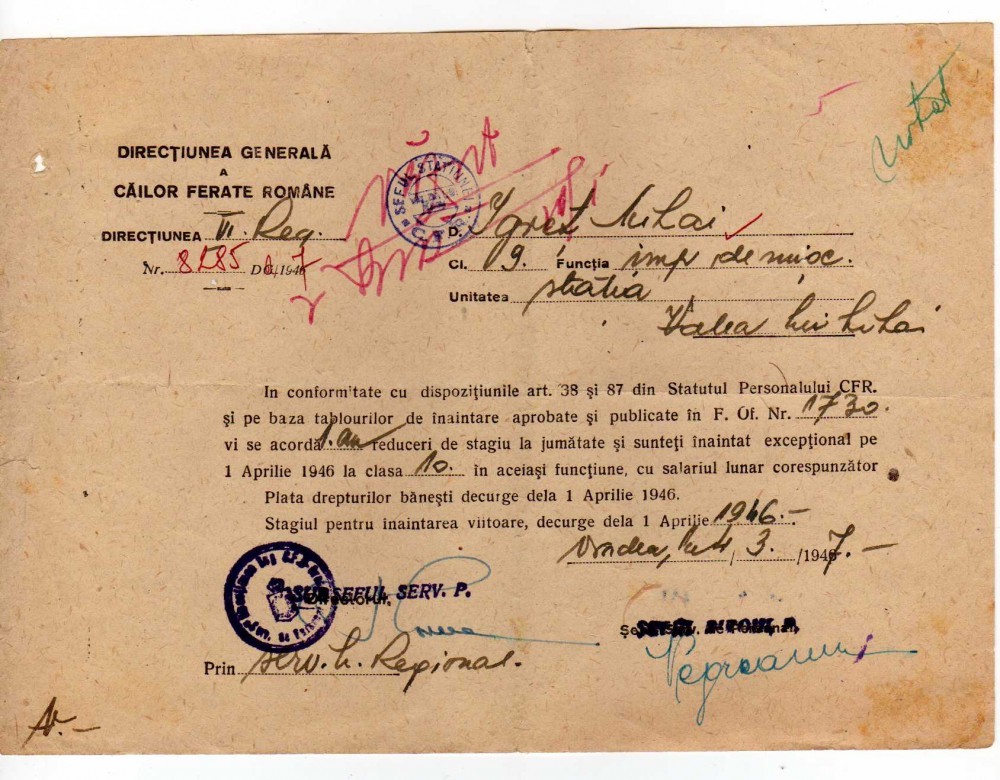 notat
DIRECȚIUNEA GENERALĂ
A
CĂILOR FERATE ROMÂNE
DIRECȚIUNEA VI. Reg.
Nr. 8285 1946 7
ȘEFUL STAȚIUNEI
C.F.R.
D. Igreț Mihai
Cl. 9. Funcția imp de mișc.
Unitatea stația
Valea lui Mihai
In conformitate cu dispozițiunile art. 38 și 87 din Statutul Personalului CFR.
și pe baza tablourilor de înaintare aprobate și publicate în F. Of. Nr. 1730.
vi se acordă 1. an reduceri de stagiu la jumătate și sunteți înaintat excepțional pe
1 Aprilie 1946 la clasa 10. în aceiași funcțiune, cu salariul lunar corespunzător
Plata drepturilor bănești decurge dela 1 Aprilie 1946.
Stagiul pentru înaintarea viitoare, decurge dela 1 Aprilie 1946.-
Oradea, / 3. /1947.-
Directorul,
SUBȘEFUL SERV. P.
Prin serv. h. Regional.